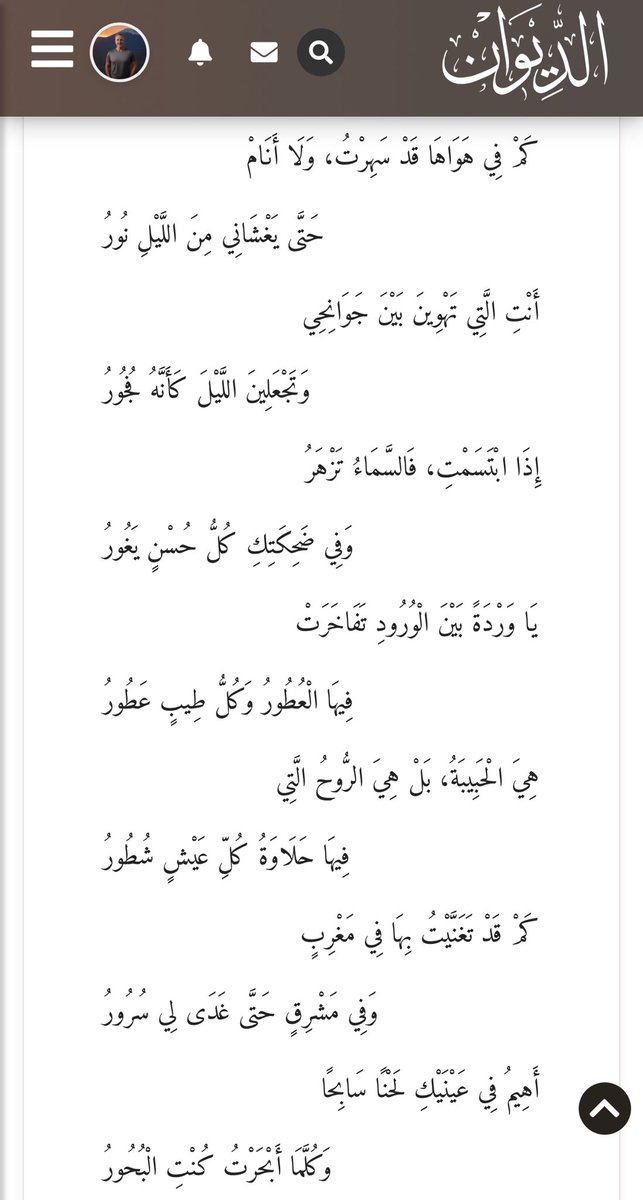 الدِّيوَان
كَمْ فِي هَوَاهَا قَدْ سَهِرْتُ، وَلَا أَنَامْ
حَتَّى يَغْشَانِي مِنَ اللَّيْلِ نُورُ
أَنْتِ الَّتِي تَهْوِينَ بَيْنَ جَوَانِحِي
وَتَجْعَلِينَ اللَّيْلَ كَأَنَّهُ فُجُورُ
إِذَا ابْتَسَمْتِ، فَالسَّمَاءُ تَزْهَرُ
وَفِي ضَحِكَتِكِ كُلُّ حُسْنٍ يَغُورُ
يَا وَرْدَةً بَيْنَ الْوُرُودِ تَفَاخَرَتْ
فِيهَا الْعُطُورُ وَكُلُّ طِيبٍ عَطُورُ
هِيَ الْحَبِيبَةُ، بَلْ هِيَ الرُّوحُ الَّتِي
فِيهَا حَلَاوَةُ كُلِّ عَيْشٍ شُطُورُ
كَمْ قَدْ تَغَنَّيْتُ بِهَا فِي مَغْرِبٍ
وَفِي مَشْرِقٍ حَتَّى غَدَى لِي سُرُورُ
أَهِيمُ فِي عَيْنَيْكِ لَحْنًا سَابِحًا
وَكُلَّمَا أَبْحَرْتُ كُنْتِ الْبُحُورُ